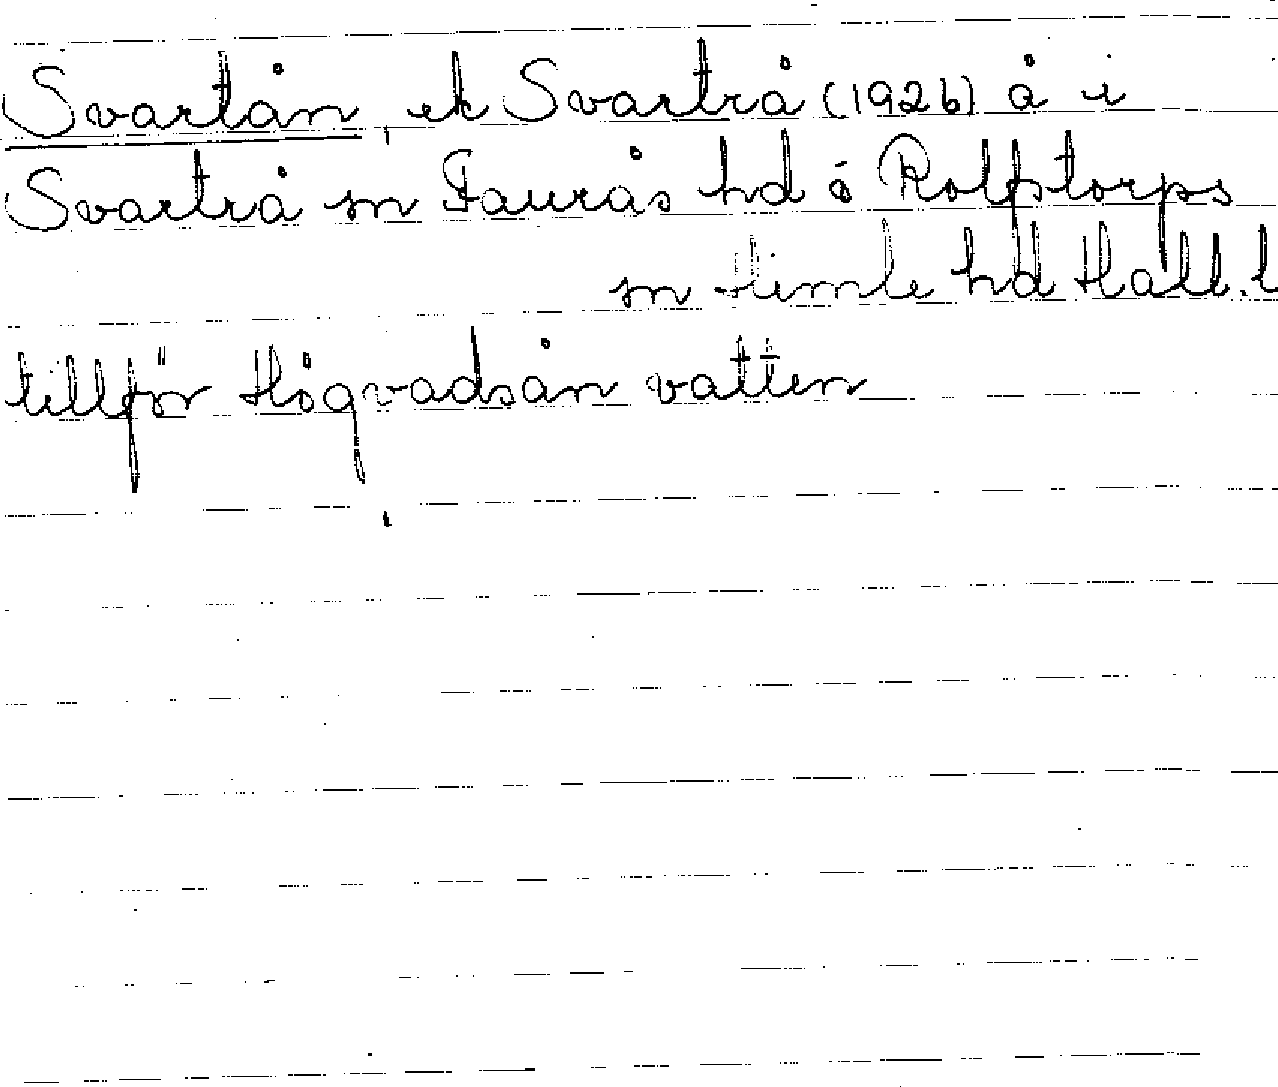 Svartån, ek Svartrå (1926) å i
Svartrå sn Faurås hd o Rolfstorps
sn Himle hd Hall. l
tillför Högvadsån vatten